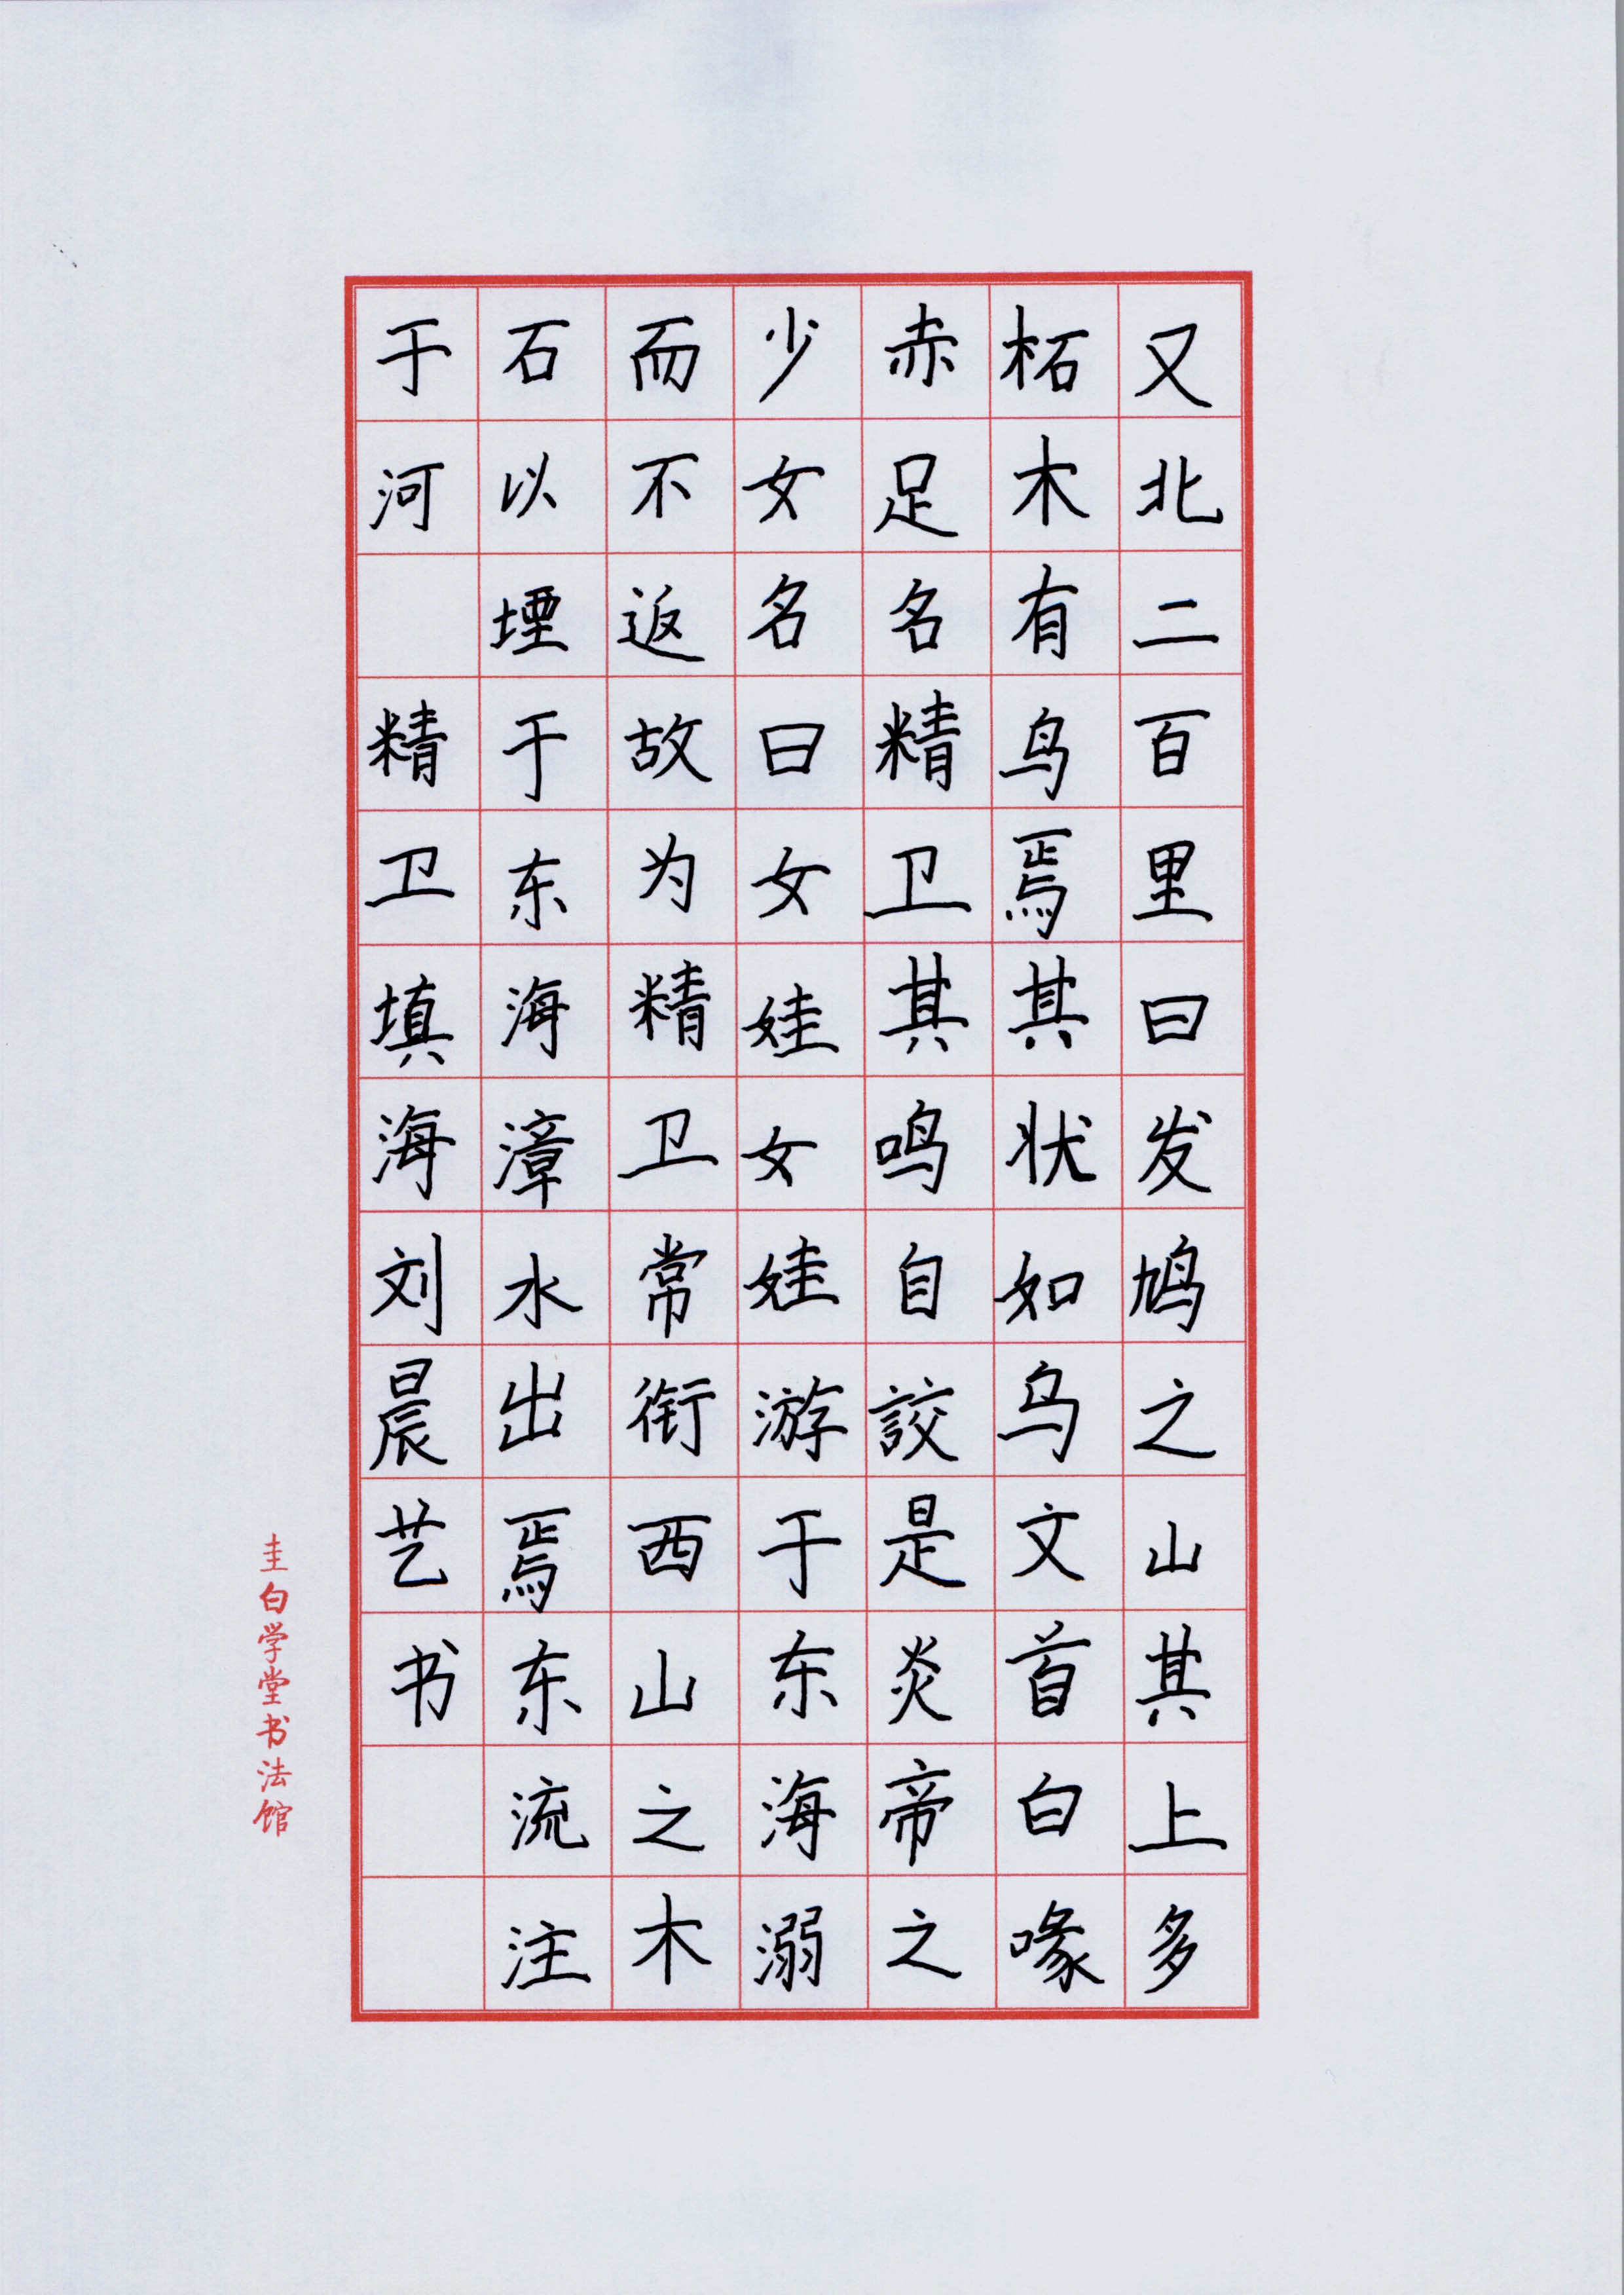 又北二百里曰发鸠之山其上多
柘木有鸟焉其状如乌文首白喙
赤足名精卫其鸣自詨是炎帝之
少女名曰女娃女娃游于东海溺
而不返故为精卫常衔西山之木
石以堙于东海漳水出焉东流注
于河 精卫填海刘晨艺书
圭白学堂书法馆